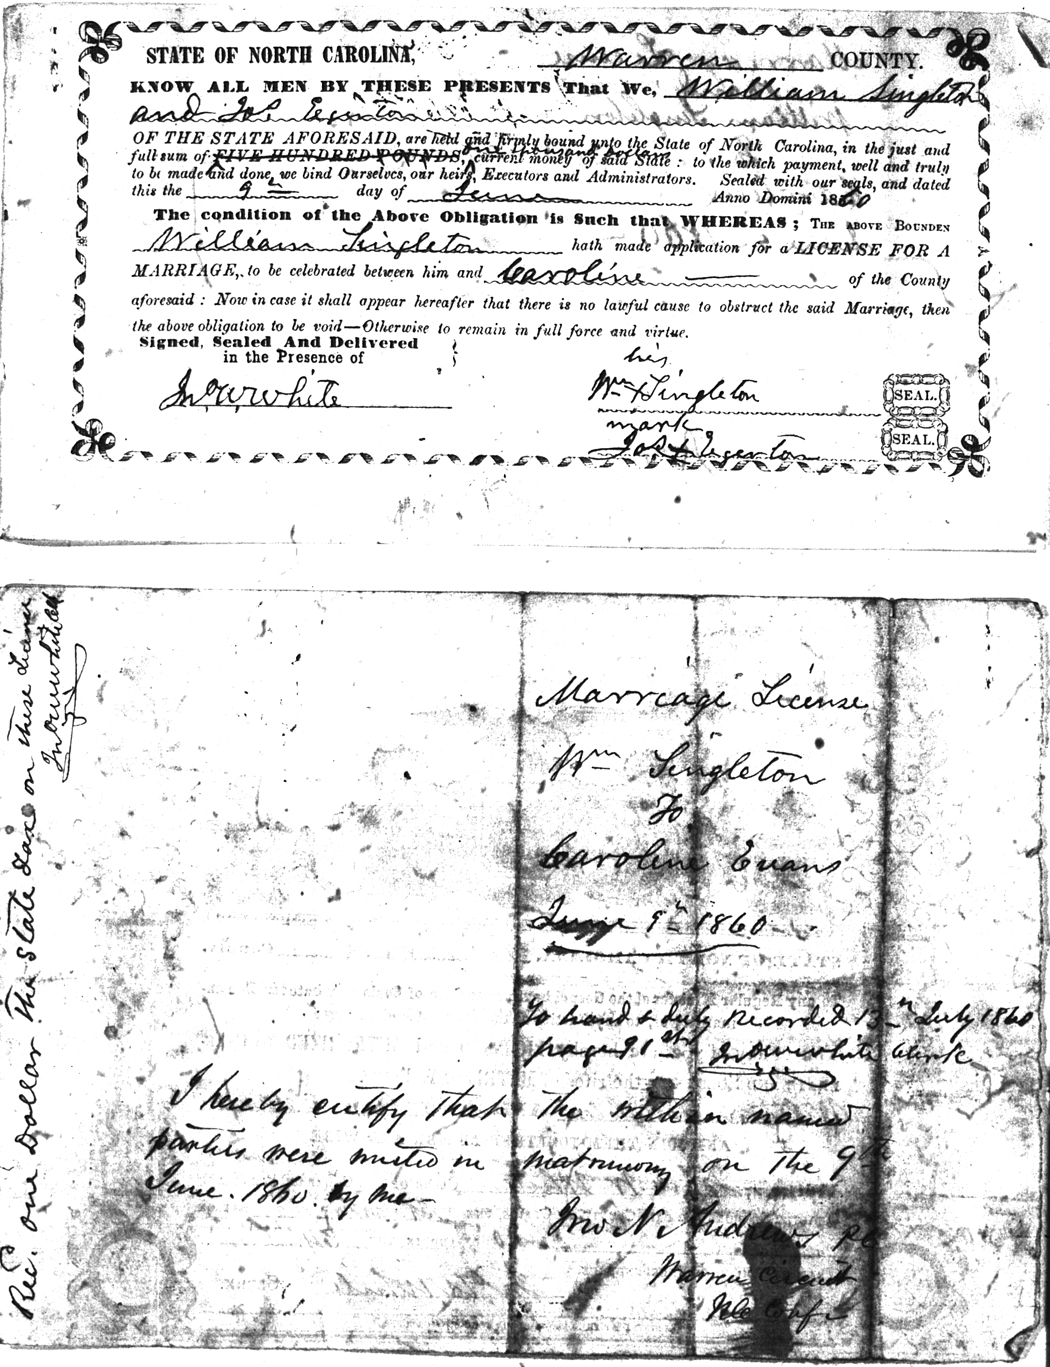 STATE OF NORTH CAROLINA, Warren COUNTY.
KNOW ALL MEN BY THESE PRESENTS That We, William Singleton
and Jos Egerton
OF THE STATE AFORESAID, are held and firmly bound unto the State of North Carolina, in the just and
one thousand dollars
full sum of FIVE HUNDRED POUNDS, current money of said State : to the which payment, well and truly
to be made and done, we bind Ourselves, our heirs, Executors and Administrators. Sealed with our seals, and dated
this the 9th day of June Anno Domini 1860
The condition of the Above Obligation is Such that WHEREAS ; THE ABOVE BOUNDEN
William Singleton hath made application for a LICENSE FOR A
MARRIAGE, to be celebrated between him and Caroline of the County
aforesaid : Now in case it shall appear hereafter that there is no lawful cause to obstruct the said Marriage, then
the above obligation to be void—Otherwise to remain in full force and virtue.
Signed, Sealed And Delivered
in the Presence of
Jno W White
his
Wm X Singleton SEAL.
mark
Jos Egerton SEAL.
Rec. one Dollar the State Tax on these License
Jno W White Clk
Marriage License
Wm Singleton
To
Caroline Evans
June 9th 1860
To hand & duly Recorded 13th July 1860
page 91st Jno W White Clerk
I hereby certify that the within named
parties were united in matrimony on the 9th
June. 1860 by me
Jno N Andrews
Warren Circuit